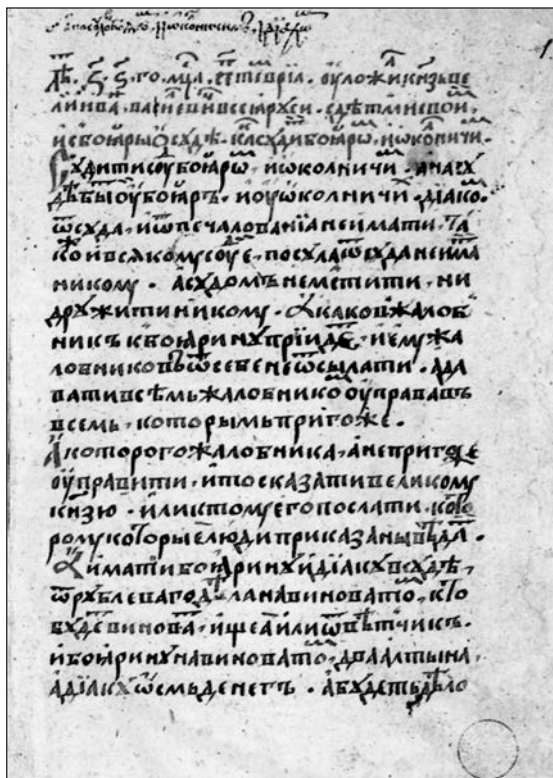 лѣ҃т . ҂ѕ҃ . ѕ҃ . го . мц҃а . септевріа . оуложил кнѧзь ве
ликіи ива҃ . васи҃евич всеѧ рꙋси . с дѣтми своими ,
и с боꙗры ѡ сꙋдѣ . как сꙋдити боꙗром , и ѡколничим .
Сꙋдити соуд боꙗром , и ѡколничим . а на сꙋ
дѣ быти оу боꙗръ . и оу ѡколничих . діаком .
ѿ сꙋда , и ѿ печалованіа не имати . та
кож и всꙗкомꙋ соудіе , посꙋла ѿ сꙋда не имати
никомꙋ . а сꙋдомъ не мстити , ни
дрꙋжити никомꙋ . А каков жалоб
никъ к боꙗринꙋ пріидет , и емꙋ жа
лобников ѿ себе не ѿсылати . а да
вати всѣмъ жалобником оуправа въ
всемь , которымь пригоже .
А которого жалобника , а не пригоже
оуправити , и то сказати великомꙋ
кнѧзю . или к томꙋ его послати . кото
ромꙋ которые люди приказаны вѣдати .
А имати боꙗринꙋ и діакꙋ в сꙋдѣ ,
ѿ рꙋблеваго дѣла на виноватом , кто
бꙋдет виноват , ищеа или ѿвѣтчикъ .
и боꙗринꙋ на виноватом , два алтына ,
а діакꙋ ѡсмь денегъ . а бꙋдеть дѣло